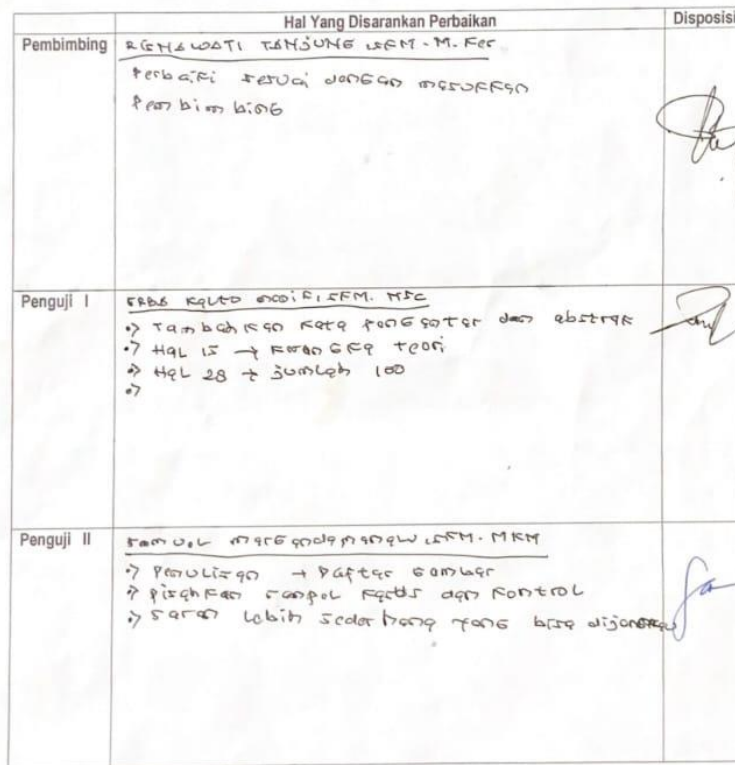 Hal Yang Disarankan Perbaikan
Disposisi
Pembimbing
RISMAWATI TANJUNG SKM. M. Kes
Perbaiki sesuai dengan masukkan
Pembimbing
Penguji I
SKM. MSC
-> Tambahkan Kata pengantar dan abstrak
-> Hal 15 → Kerangka teori
-> Hal 28 → jumlah 100
->
Penguji II
SKM. MKM
-> Penulisan → Daftar Gambar
-> pisahkan sampel Kasus dan Kontrol
-> saran lebih sederhana yang bisa dijangkau